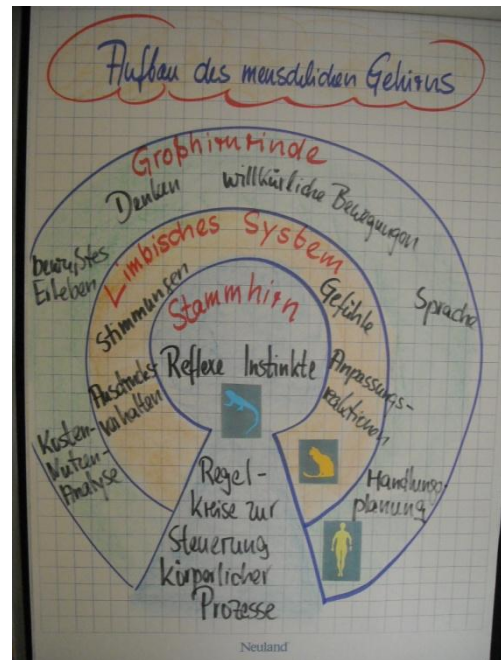 Aufbau des menschlichen Gehirns
Großhirnrinde
Denken
willkürliche Bewegungen
bewußtes
Erleben
Sprache
Kosten-
Nutzen-
Analyse
Handlungs-
planung
Limbisches System
Stimmungen
Gefühle
Ausdrucks-
verhalten
Anpassungs-
reaktionen
Stammhirn
Reflexe Instinkte
Regel-
Kreise zur
Steuerung
körperlicher
Prozesse
Neuland